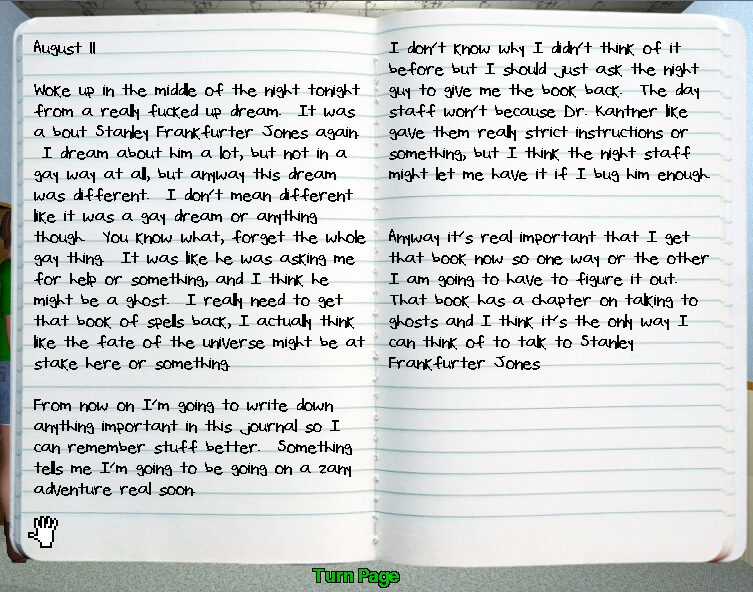 August 11
Woke up in the middle of the night tonight
from a really fucked up dream.  It was
a bout Stanley Frankfurter Jones again
I dream about him a lot, but not in a
gay way at all, but anyway this dream
was different.  I don't mean different
like it was a gay dream or anything
though  You know what, forget the whole
gay thing  It was like he was asking me
for help or something, and I think he
might be a ghost.  I really need to get
that book of spells back, I actually think
like the fate of the universe might be at
stake here or something
From now on I'm going to write down
anything important in this journal so I
can remember stuff better.  Something
tells me I'm going to be going on a zany
adventure real soon
I don't know why I didn't think of it
before but I should just ask the night
guy to give me the book back.  The day
staff won't because Dr. Kantner like
gave them really strict instructions or
something, but I think the night staff
might let me have it if I bug him enough
Anyway it's real important that I get
that book now so one way or the other
I am going to have to figure it out.
That book has a chapter on talking to
ghosts and I think it's the only way I
can think of to talk to Stanley
Frankfurter Jones
Turn Page